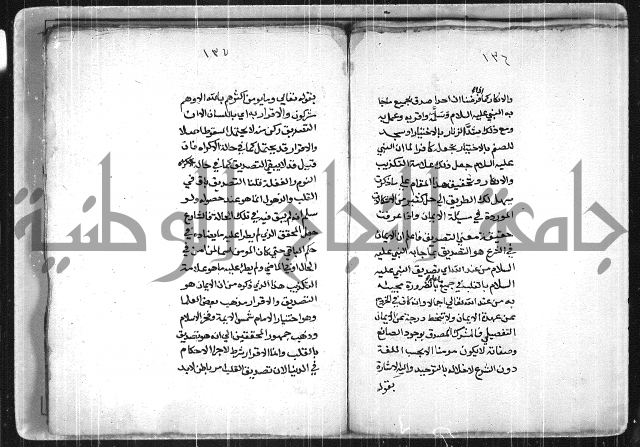 ١٣٦
والانكار كما فرضنا ان احدا صدق بجميع ما جا
به النبي عليه السلام وسلمه واقر به وعمل به
ومع ذلك شد الزنار بالاختيار او سجد
للصنم بالاختيار نجعله كافرا لما ان النبي
عليه السلام جعل ذلك علامة التكذيب
والانكار وتحقيق هذا المقام على ما ذكرت
يسهل لك الطريق الى حل كثير من الاشكالات
الموردة في مسئلة الايمان واذا عرفت
حقيقة معنى التصديق فاعلم ان الايمان
في الشرع هو التصديق بما جا به النبي عليه
السلام من عند الله اي تصديق النبي عليه
السلام بالقلب في جميع ما علم بالضرورة مجيئه
به من عند الله تعالى اجمالا وانه كاف في الخروج
عن عهدة الايمان ولا تنحط درجته عن الايمان
التفصيلي فالمشرك المصدق بوجود الصانع
وصفاته لا يكون مومنا الا بحسب اللغة
دون الشرع لاخلاله بالتوحيد واليه الاشارة
بقوله
١٣٧
بقوله تعالى وما يومن اكثرهم بالله الا وهم
مشركون والاقرار به اي باللسان الا ان
التصديق ركن منه لا يحتمل السقوط اصلا
والاقرار قد يحتمله كما في حالة الاكراه فان
قيل قد لا يبقى التصديق كما في حالة
النوم والغفلة قلنا التصديق باق في
القلب والذهول انما هو عن حصوله ولو
سلم انه لم يبق فيه في تلك الحالة فالشارع
جعل المحقق الذي لم يطرا عليه ما يضاده في
حكم الباقي حتى كان المومن اسما لمن امن في
الحال او في الماضي ولم يطرا عليه ما هو علامة
التكذيب هذا الذي ذكره من ان الايمان هو
التصديق والاقرار مذهب بعض العلما
وهو اختيار الامام شمس الايمة وفخر الاسلام
وذهب جمهور المحققين الى انه هو تصديق
بالقلب وانما الاقرار شرط لاجرا الاحكام
في الدنيا لان تصديق القلب امر باطن لا بد
جامعة الإمام الوطنية